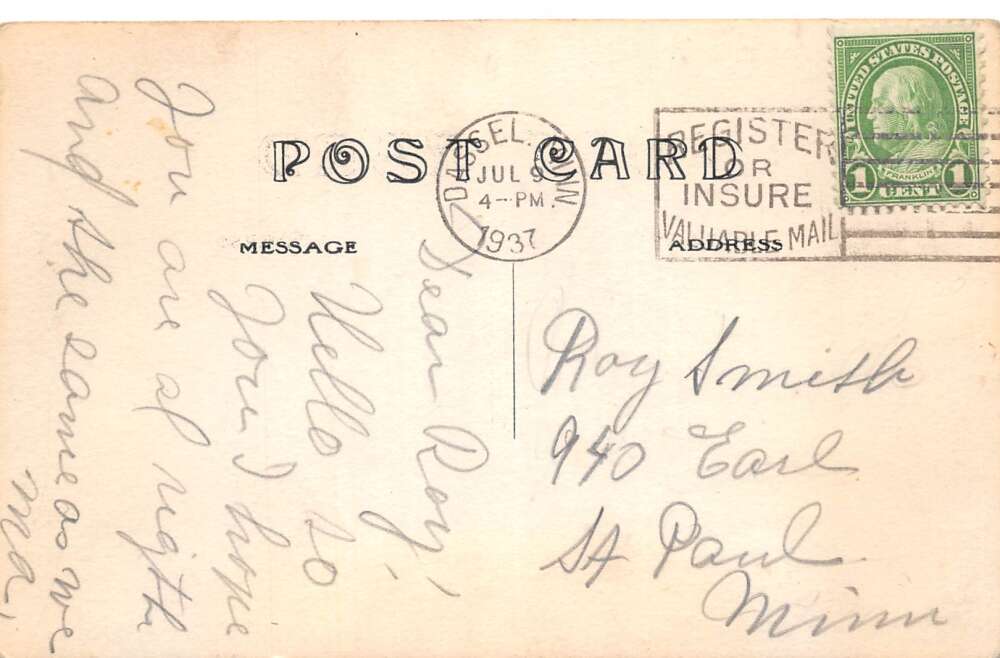 POST CARD
DASSEL, MINN
JUL 9
4-PM.
1937
REGISTER
OR
INSURE
VALUABLE MAIL
UNITED STATES POSTAGE
FRANKLIN
1 CENT 1
MESSAGE
ADDRESS
Dear Roy,
Hello to
You I hope
You are al right
and the same as we
ma,
Roy Smith
940 Earl
St Paul
Minn